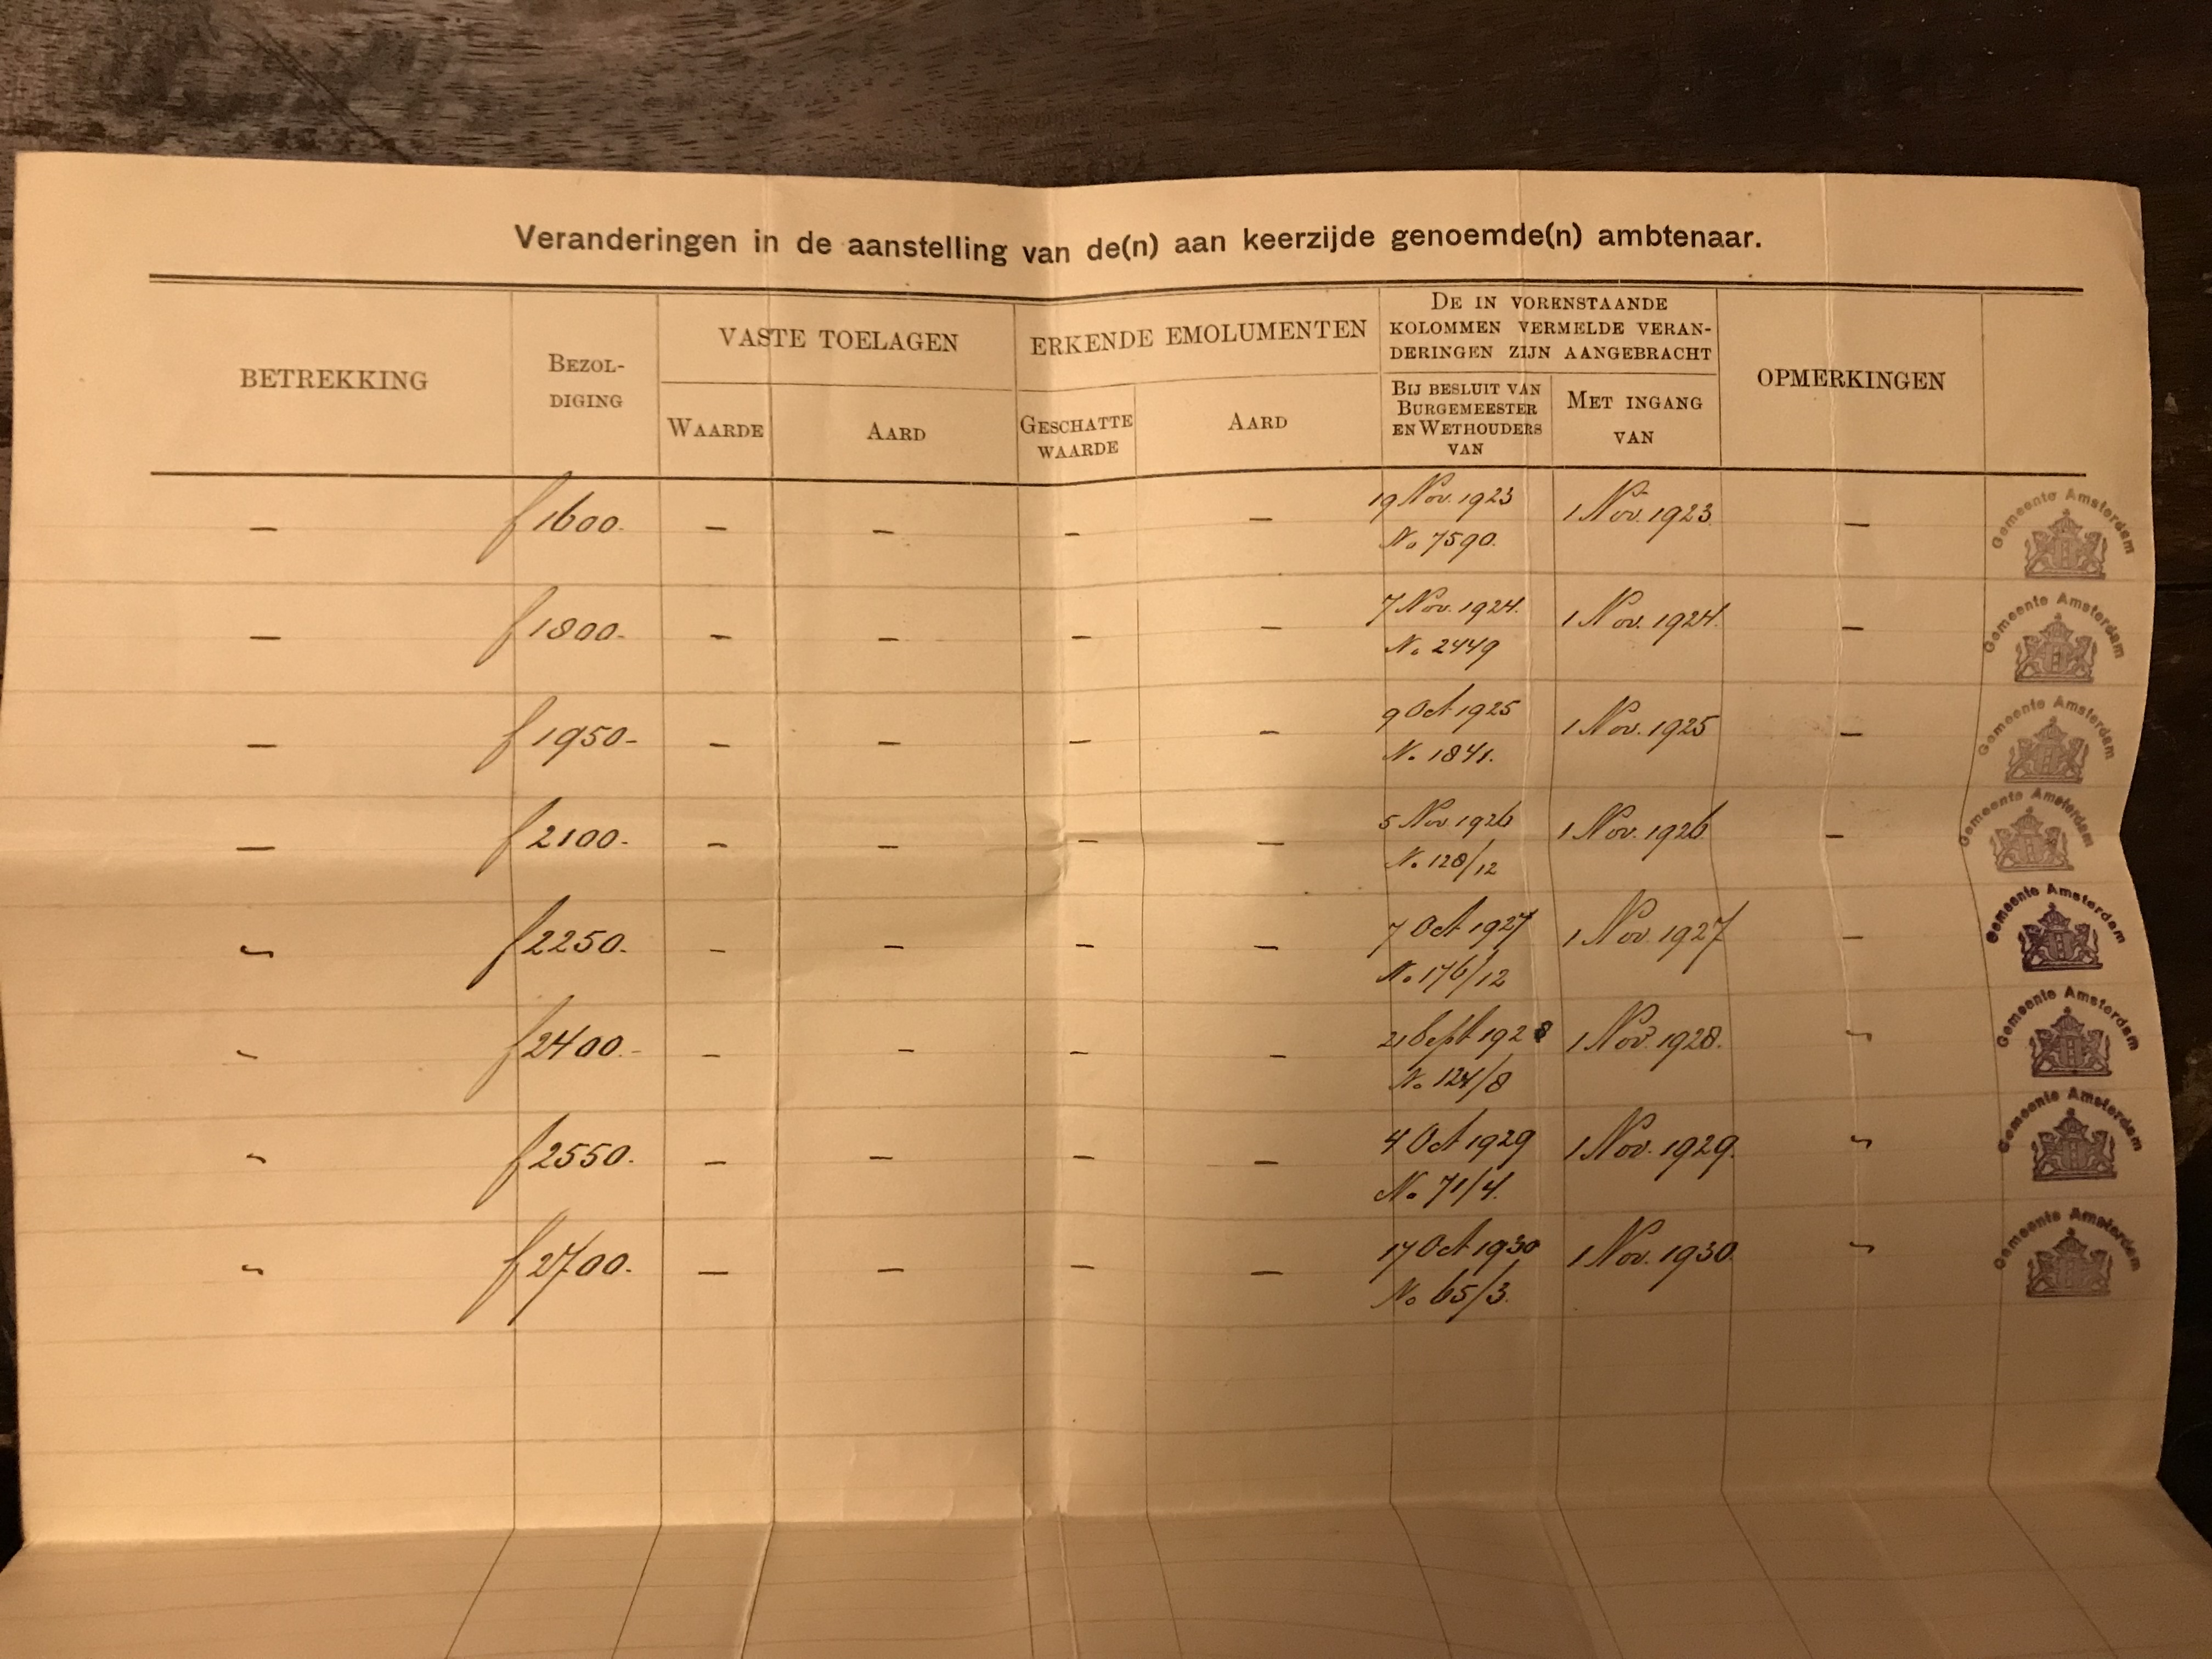 Veranderingen in de aanstelling van de(n) aan keerzijde genoemde(n) ambtenaar.
BETREKKING
BEZOL-
DIGING
VASTE TOELAGEN
WAARDE
AARD
ERKENDE EMOLUMENTEN
GESCHATTE
WAARDE
AARD
DE IN VORENSTAANDE
KOLOMMEN VERMELDE VERAN-
DERINGEN ZIJN AANGEBRACHT
BIJ BESLUIT VAN
BURGEMEESTER
EN WETHOUDERS
VAN
MET INGANG
VAN
OPMERKINGEN
— f 1600.- — — — — 19 Nov. 1923 1 Nov. 1923 —
No 7590.
Gemeente Amsterdam
— f 1800.- — — — — 7 Nov. 1924. 1 Nov. 1924. —
No 2449
Gemeente Amsterdam
— f 1950- — — — — 9 Oct 1925 1 Nov. 1925 —
No. 1841.
Gemeente Amsterdam
— f 2100.- — — — — 5 Nov 1926 1 Nov. 1926 —
No. 128/12
Gemeente Amsterdam
" f 2250.- — — — — 7 Oct 1927 1 Nov 1927 —
No. 176/12
Gemeente Amsterdam
" f 2400.- — — — — 21 Sept 1928 1 Nov. 1928. "
No. 124/8
Gemeente Amsterdam
" f 2550.- — — — — 4 Oct 1929 1 Nov. 1929. "
No 71/4.
Gemeente Amsterdam
" f 2700.- — — — — 17 Oct 1930 1 Nov. 1930. "
No 65/3.
Gemeente Amsterdam